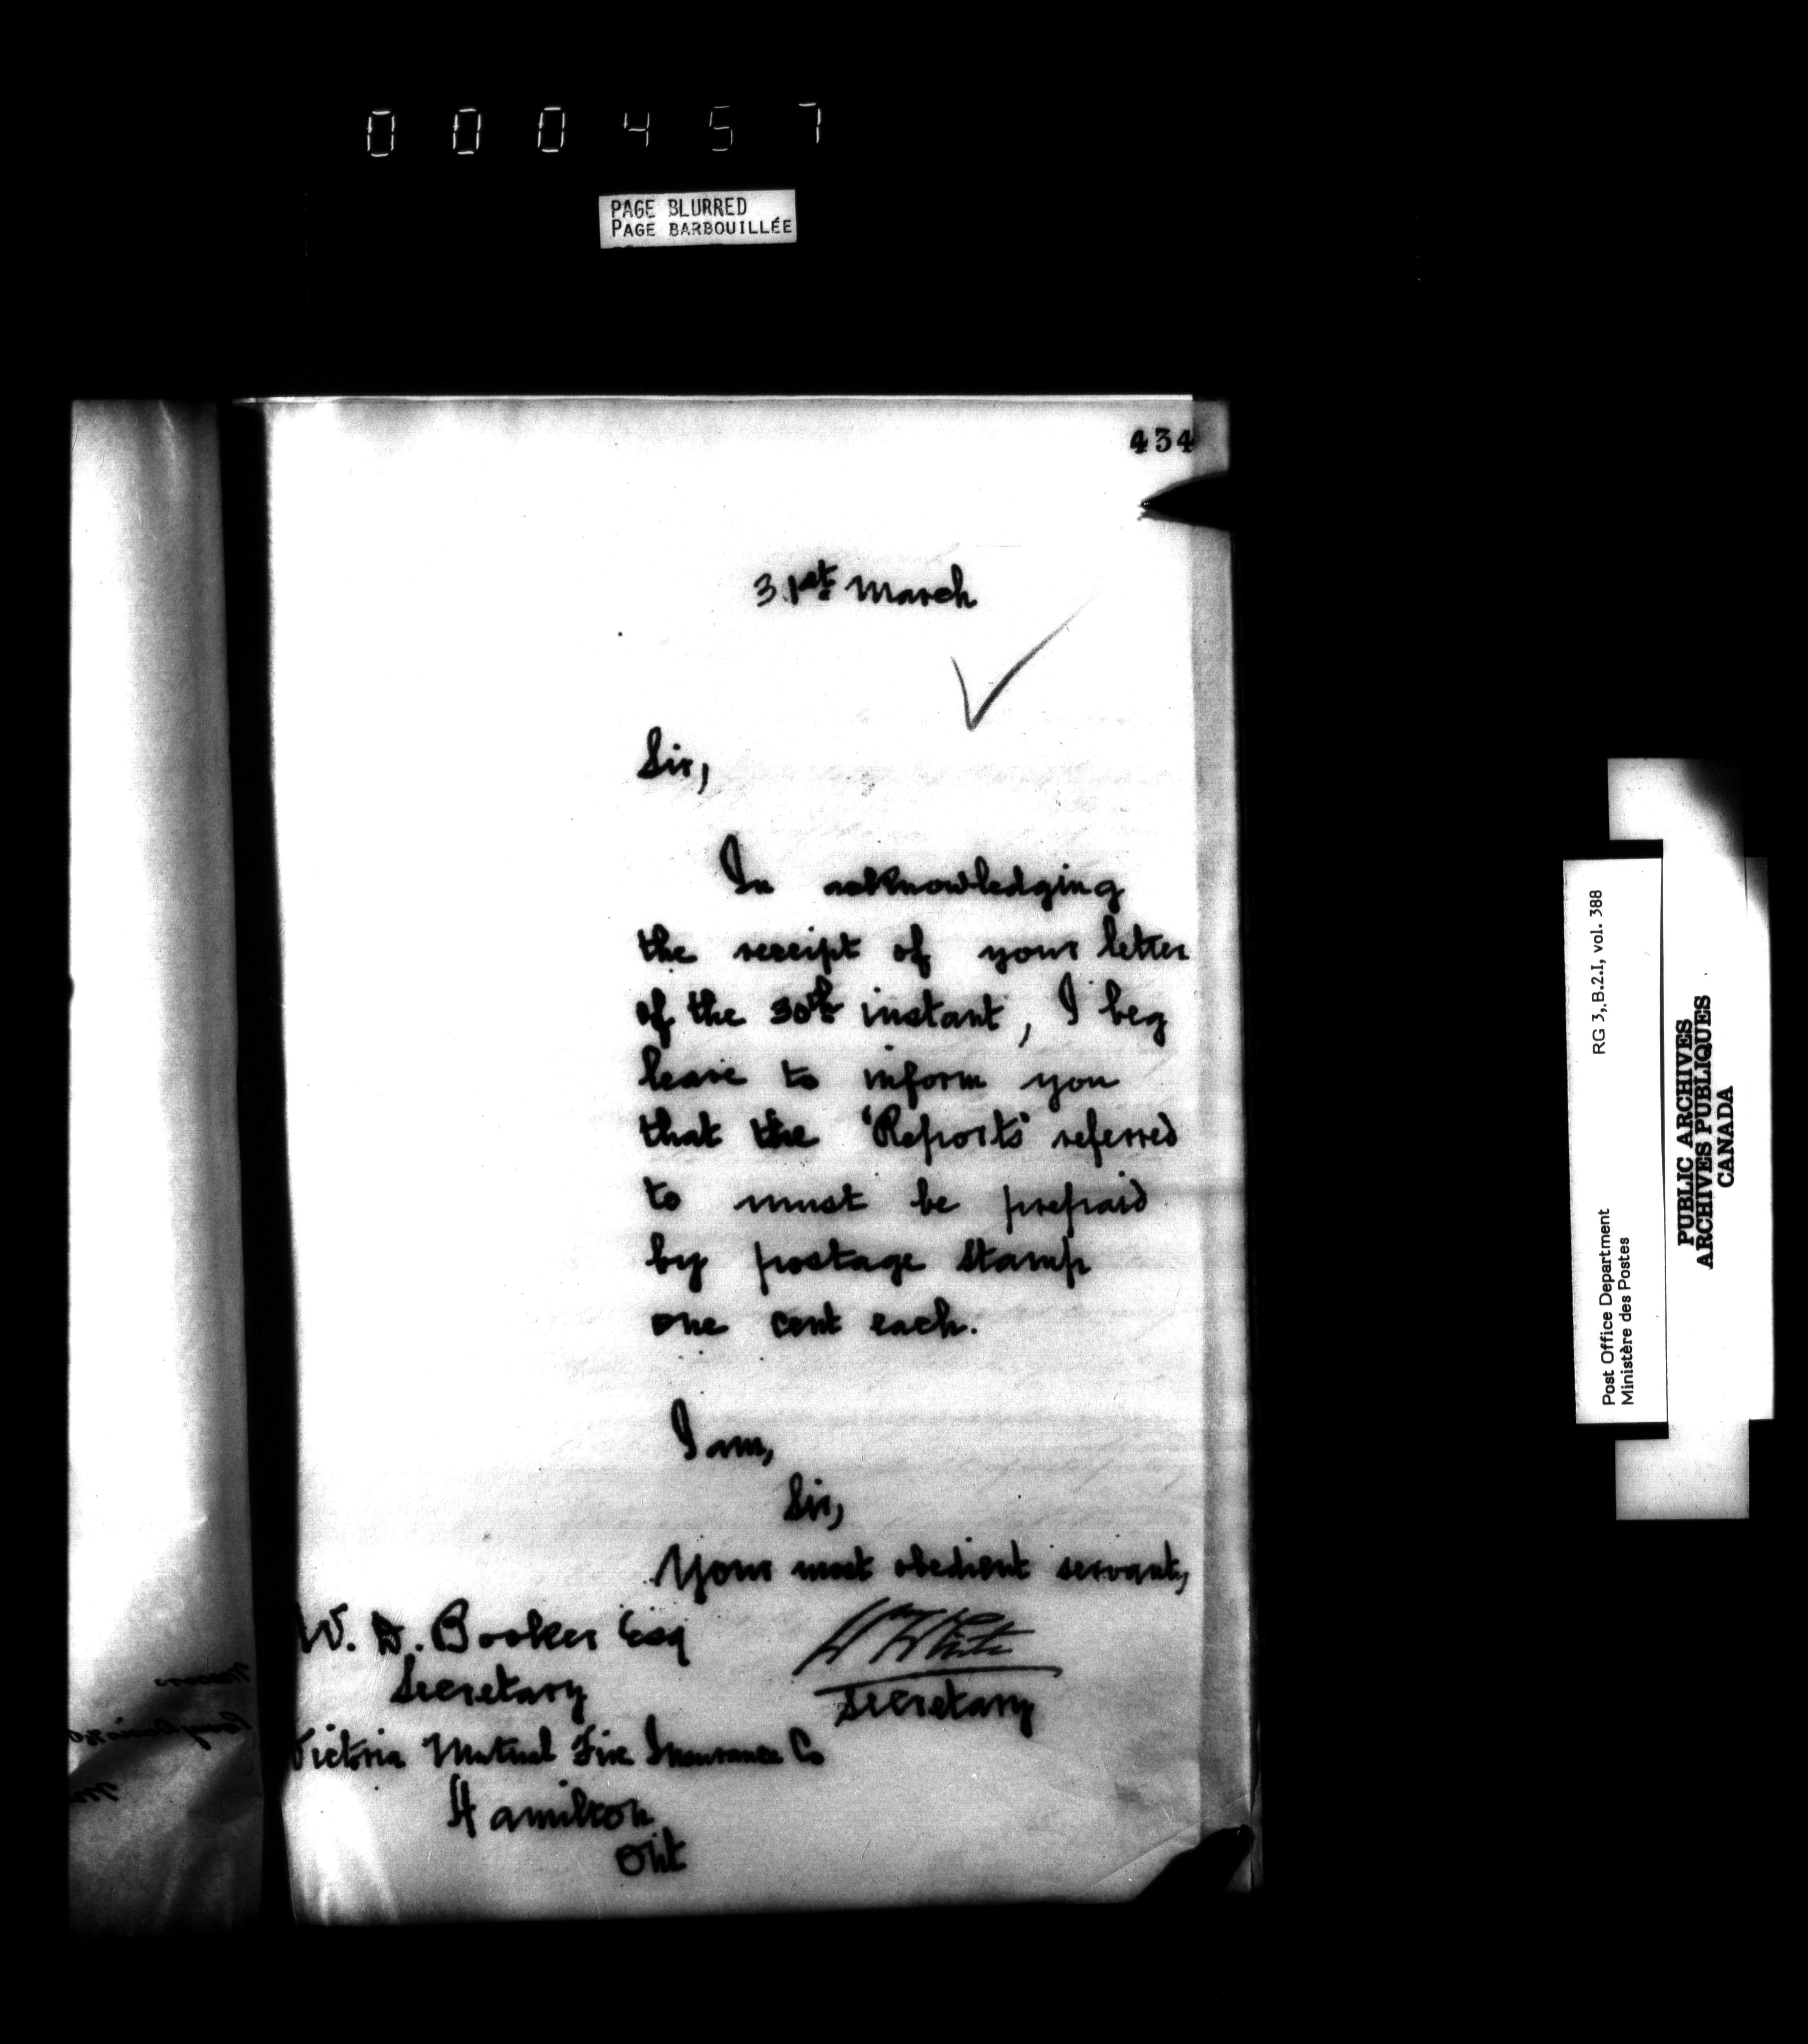 000457
PAGE BLURRED
PAGE BARBOUILLÉE
434
31st March
Sir,
In acknowledging
the receipt of your letter
of the 30th instant, I beg
leave to inform you
that the 'Reports' referred
to must be prepaid
by postage stamp
one cent each.
I am,
Sir,
Your most obedient servant,
W. D. Booker Esq
Secretary
Victoria Mutual Fire Insurance Co
Hamilton
Ont
Wm White
Secretary
RG 3, B.2.I, vol. 388
Post Office Department
Ministère des Postes
PUBLIC ARCHIVES
ARCHIVES PUBLIQUES
CANADA